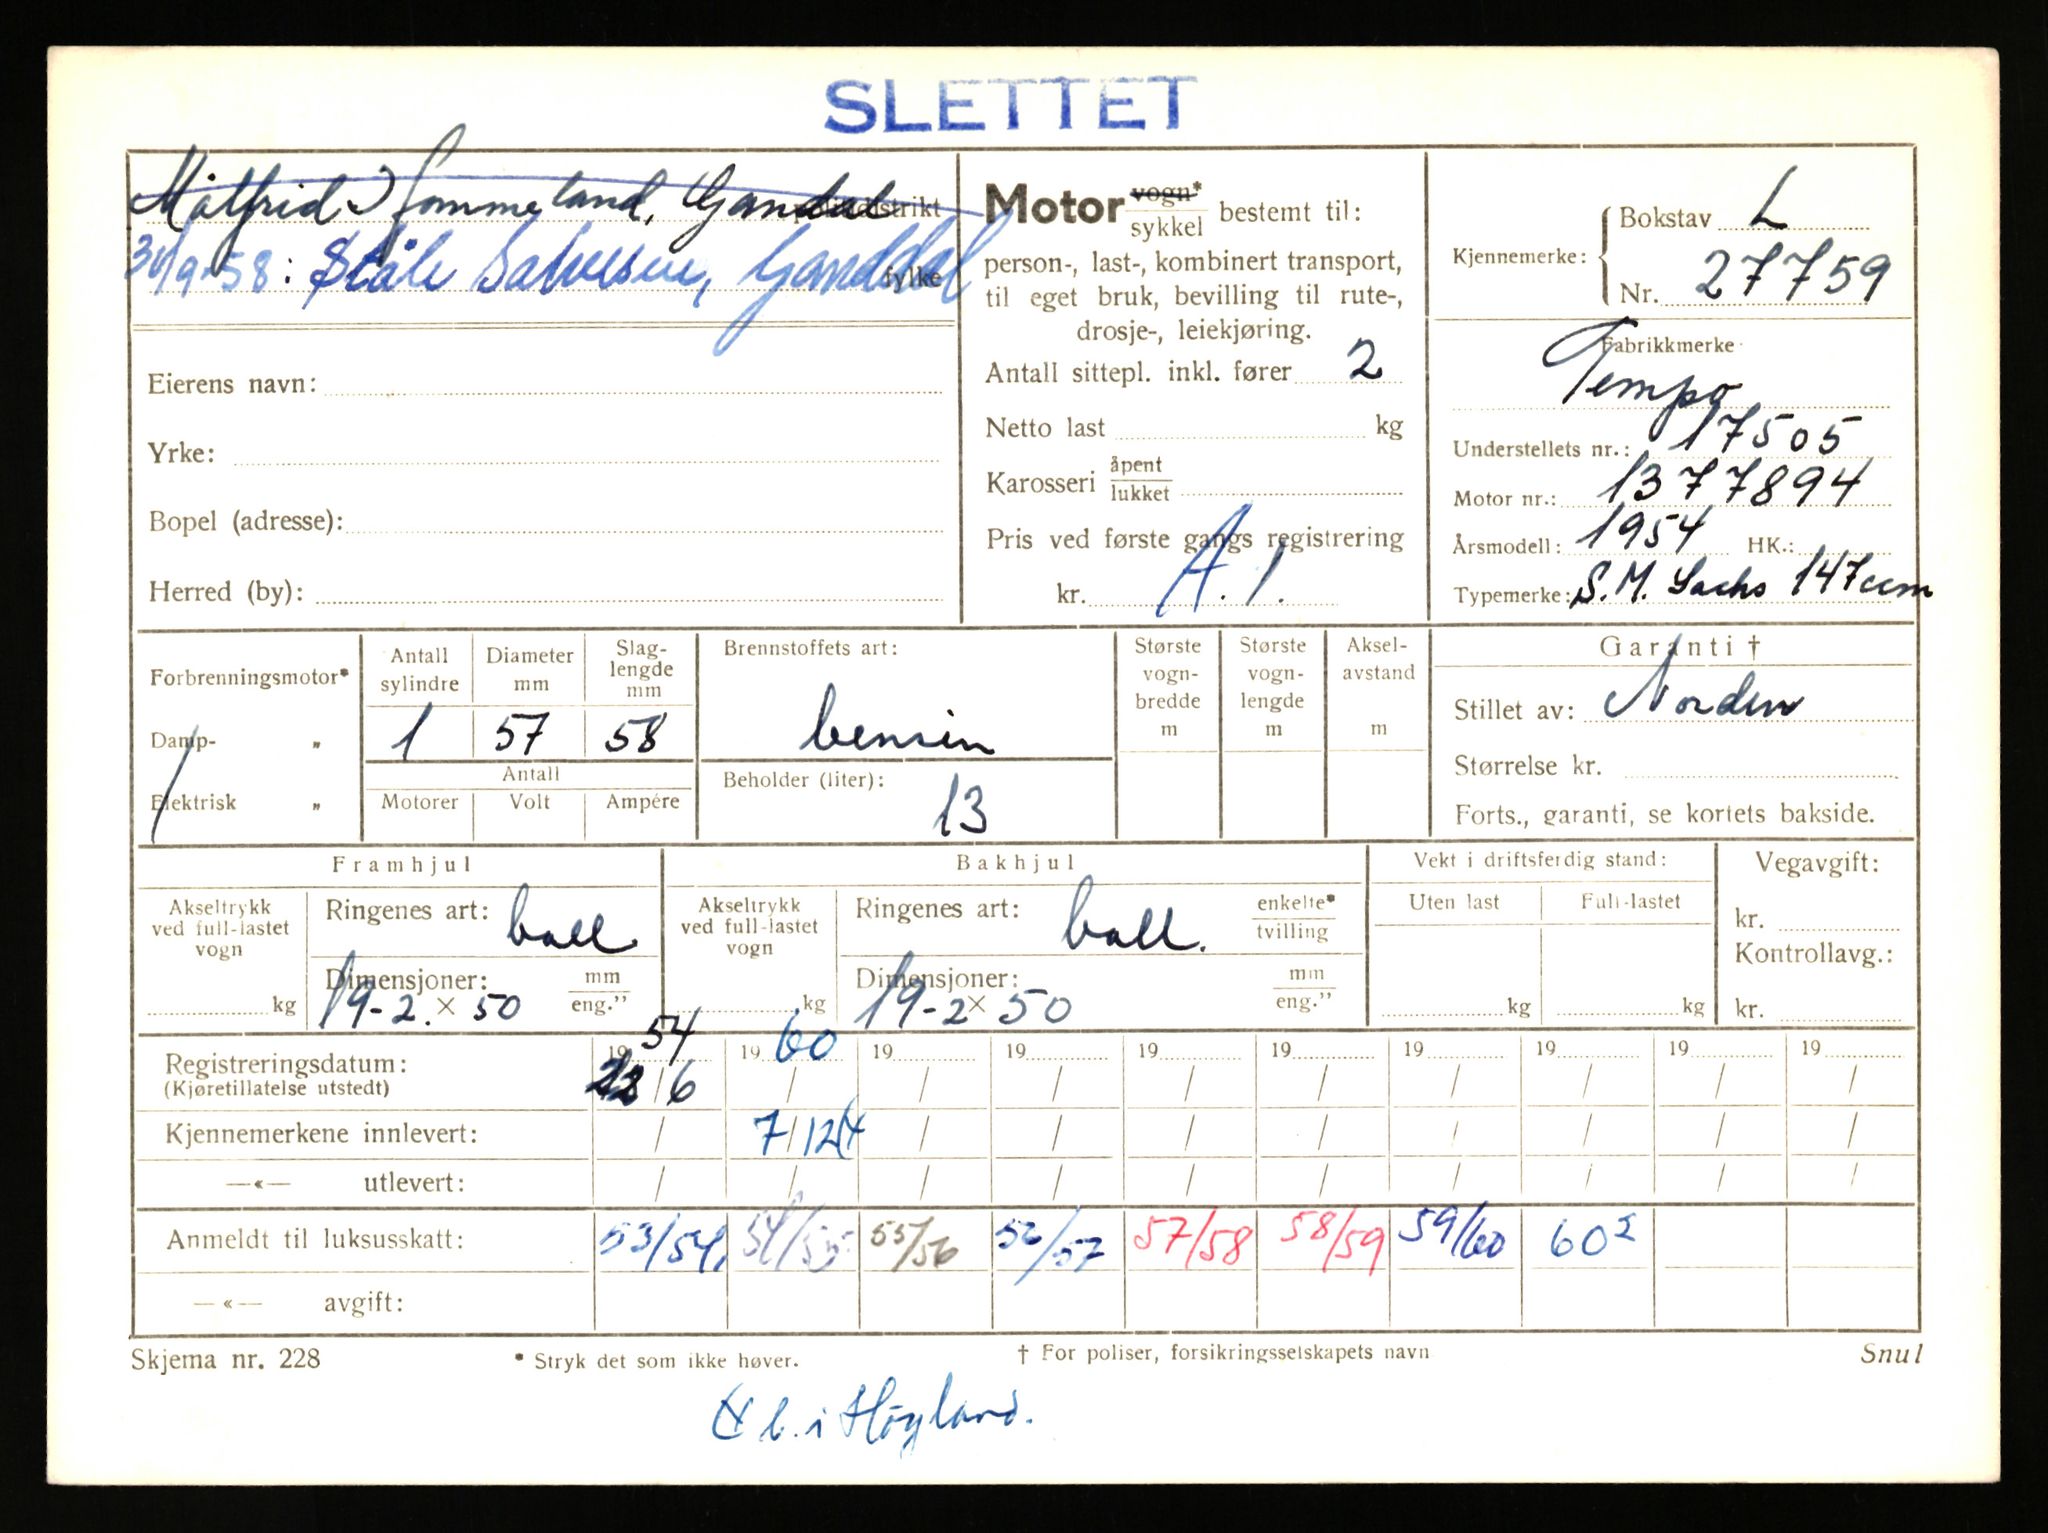 SLETTET
Målfrid Hommeland, Gandal politidistrikt
30/9-58: Ståle Salvesen, Ganddal fylke
Eierens navn:
Yrke:
Bopel (adresse):
Herred (by):
Motor vogn* / sykkel bestemt til:
person-, last-, kombinert transport,
til eget bruk, bevilling til rute-,
drosje-, leiekjøring.
Antall sittepl. inkl. fører 2
Netto last kg
Karosseri åpent / lukket
Pris ved første gangs registrering
kr. A. 1.
Kjennemerke: Bokstav L
Nr. 27759
Fabrikkmerke
Tempo
Understellets nr.: 17505
Motor nr.: 1377894
Årsmodell: 1954 HK.:
Typemerke: S.M. Sachs 147ccm
Forbrenningsmotor*
Damp- „
Elektrisk „
Antall sylindre
Diameter mm
Slag-lengde mm
1 57 58
Antall
Motorer Volt Ampére
Brennstoffets art:
bensin
Beholder (liter):
13
Største vogn-bredde m
Største vogn-lengde m
Aksel-avstand m
Garanti †
Stillet av: Norden
Størrelse kr.
Forts., garanti, se kortets bakside.
Framhjul
Akseltrykk ved full-lastet vogn
kg
Ringenes art: ball.
Dimensjoner: mm / eng.”
19-2. × 50
Bakhjul
Akseltrykk ved full-lastet vogn
kg
Ringenes art: ball. enkelte* / tvilling
Dimensjoner: mm / eng.”
19-2 × 50
Vekt i driftsferdig stand:
Uten last Full-lastet
kg kg
Vegavgift:
kr.
Kontrollavg.:
kr.
Registreringsdatum: 1954 1960 19 19 19 19 19 19 19 19
(Kjøretillatelse utstedt) / 6 / / / / / / / / /
Kjennemerkene innlevert: / 7/12 / / / / / / / /
—«— utlevert: / / / / / / / / / /
Anmeldt til luksusskatt: 53/54. 54/55 55/56 56/57 57/58 58/59 59/60 60²
—«— avgift:
Skjema nr. 228 * Stryk det som ikke høver. † For poliser, forsikringsselskapets navn Snul
b. i Høyland.